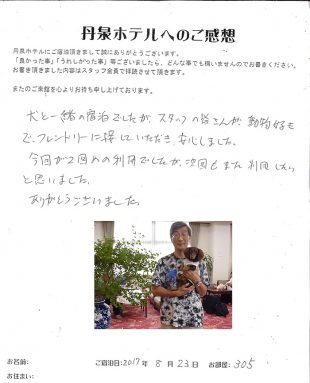 丹泉ホテルへのご感想
丹泉ホテルにご宿泊頂きまして誠にありがとうございます。
「良かった事」「うれしかった事」等ございましたら、どんな事でも構いませんのでお書きください。
お書き頂きました内容はスタッフ全員で拝読させて頂きます。
またのご来館を心よりお待ち申し上げております。
犬と一緒の宿泊でしたが、スタッフの皆さんが動物好き
で、フレンドリーに接していただき、安心しました。
今回が2回めの利用でしたが、次回もまた利用したい
と思いました。
ありがとうございました。
お名前:
ご宿泊日:2017年 8月23日 お部屋:305
お住まい: